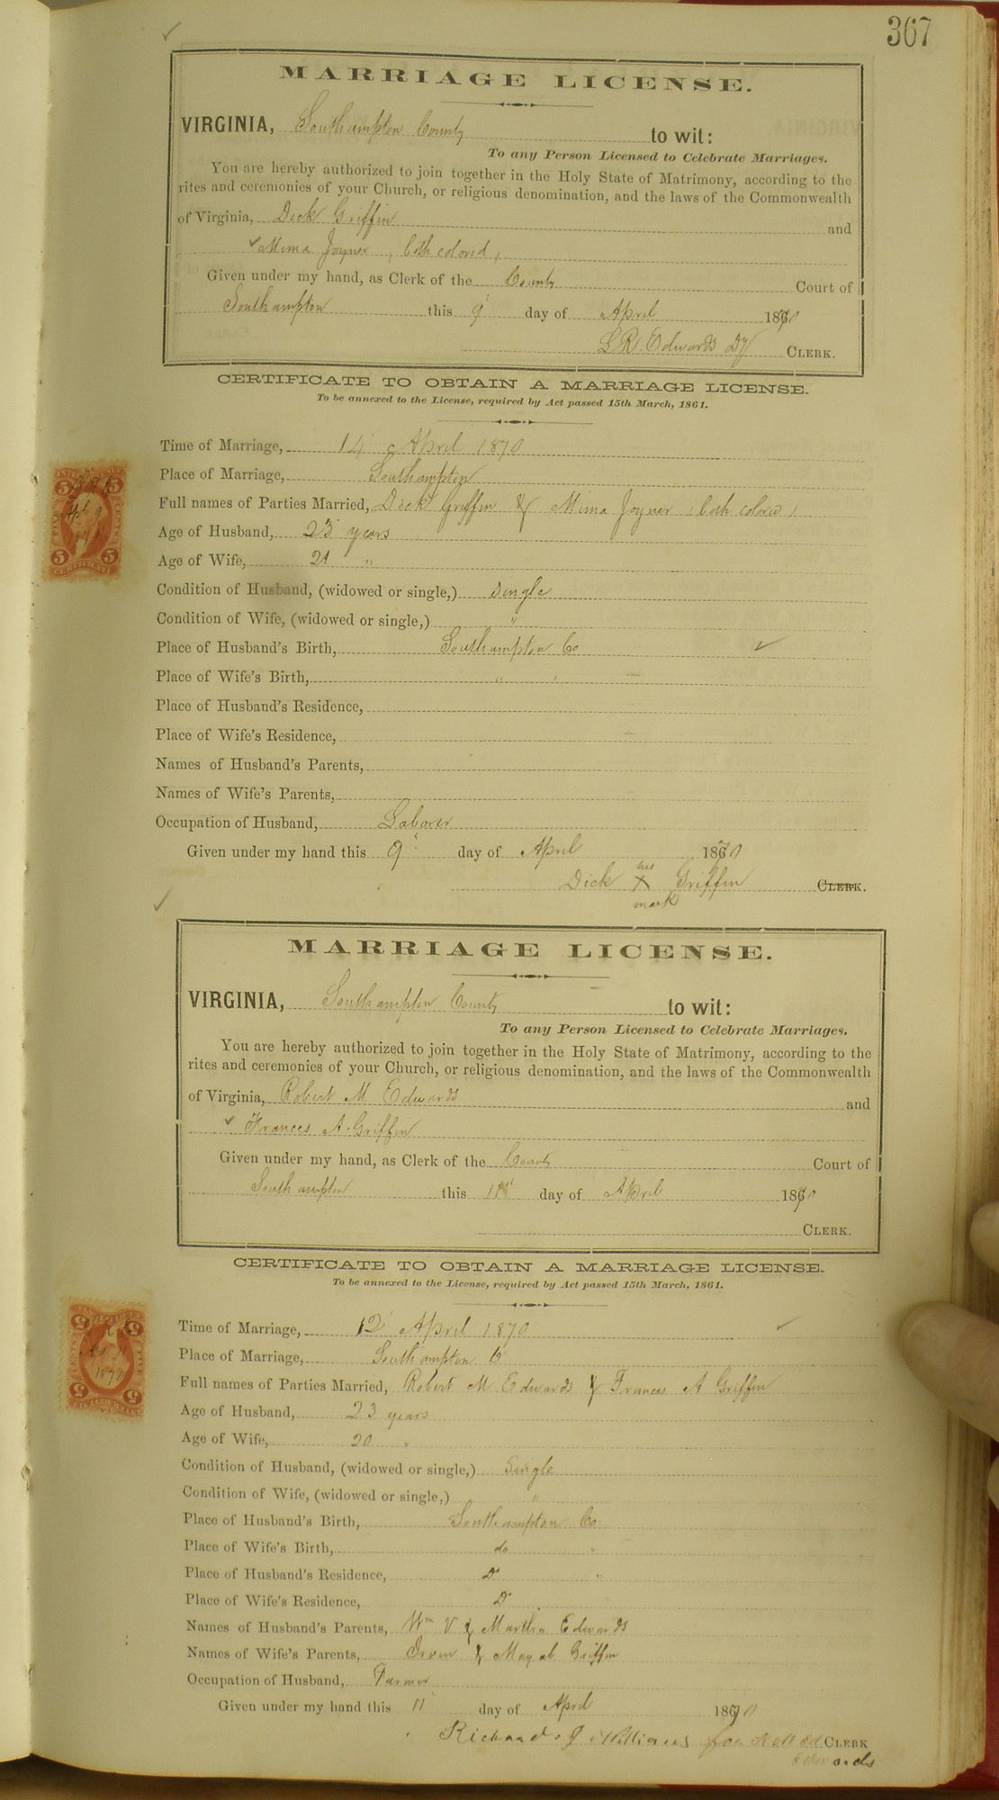 367
MARRIAGE LICENSE.
VIRGINIA, Southampton County to wit:
To any Person Licensed to Celebrate Marriages.
You are hereby authorized to join together in the Holy State of Matrimony, according to the
rites and ceremonies of your Church, or religious denomination, and the laws of the Commonwealth
of Virginia, Dick Griffin and
Mima Joyner, both colored,
Given under my hand, as Clerk of the County Court of
Southampton this 9 day of April 1870
L R Edwards Dy CLERK.
CERTIFICATE TO OBTAIN A MARRIAGE LICENSE.
To be annexed to the License, required by Act passed 15th March, 1861.
Time of Marriage, 14 April 1870
Place of Marriage, Southampton
Full names of Parties Married, Dick Griffin & Mima Joyner (both colored)
Age of Husband, 23 years
Age of Wife, 21 "
Condition of Husband, (widowed or single,) Single
Condition of Wife, (widowed or single,) "
Place of Husband's Birth, Southampton Co
Place of Wife's Birth, " "
Place of Husband's Residence,
Place of Wife's Residence,
Names of Husband's Parents,
Names of Wife's Parents,
Occupation of Husband, Laborer
Given under my hand this 9 day of April 1870
his
Dick X Griffin CLERK.
mark
MARRIAGE LICENSE.
VIRGINIA, Southampton County to wit:
To any Person Licensed to Celebrate Marriages.
You are hereby authorized to join together in the Holy State of Matrimony, according to the
rites and ceremonies of your Church, or religious denomination, and the laws of the Commonwealth
of Virginia, Robert M Edwards and
Frances A. Griffin
Given under my hand, as Clerk of the County Court of
Southampton this 11 day of April 1870
CLERK.
CERTIFICATE TO OBTAIN A MARRIAGE LICENSE.
To be annexed to the License, required by Act passed 15th March, 1861.
Time of Marriage, 12 April 1870
Place of Marriage, Southampton Co
Full names of Parties Married, Robert M. Edwards & Frances A Griffin
Age of Husband, 23 years
Age of Wife, 20 "
Condition of Husband, (widowed or single,) Single
Condition of Wife, (widowed or single,) "
Place of Husband's Birth, Southampton Co
Place of Wife's Birth, do "
Place of Husband's Residence, Do "
Place of Wife's Residence, Do
Names of Husband's Parents, Wm V & Martha Edwards
Names of Wife's Parents, & Griffin
Occupation of Husband, Farmer
Given under my hand this 11 day of April 1870
Richard J Williams for CLERK
Edwards